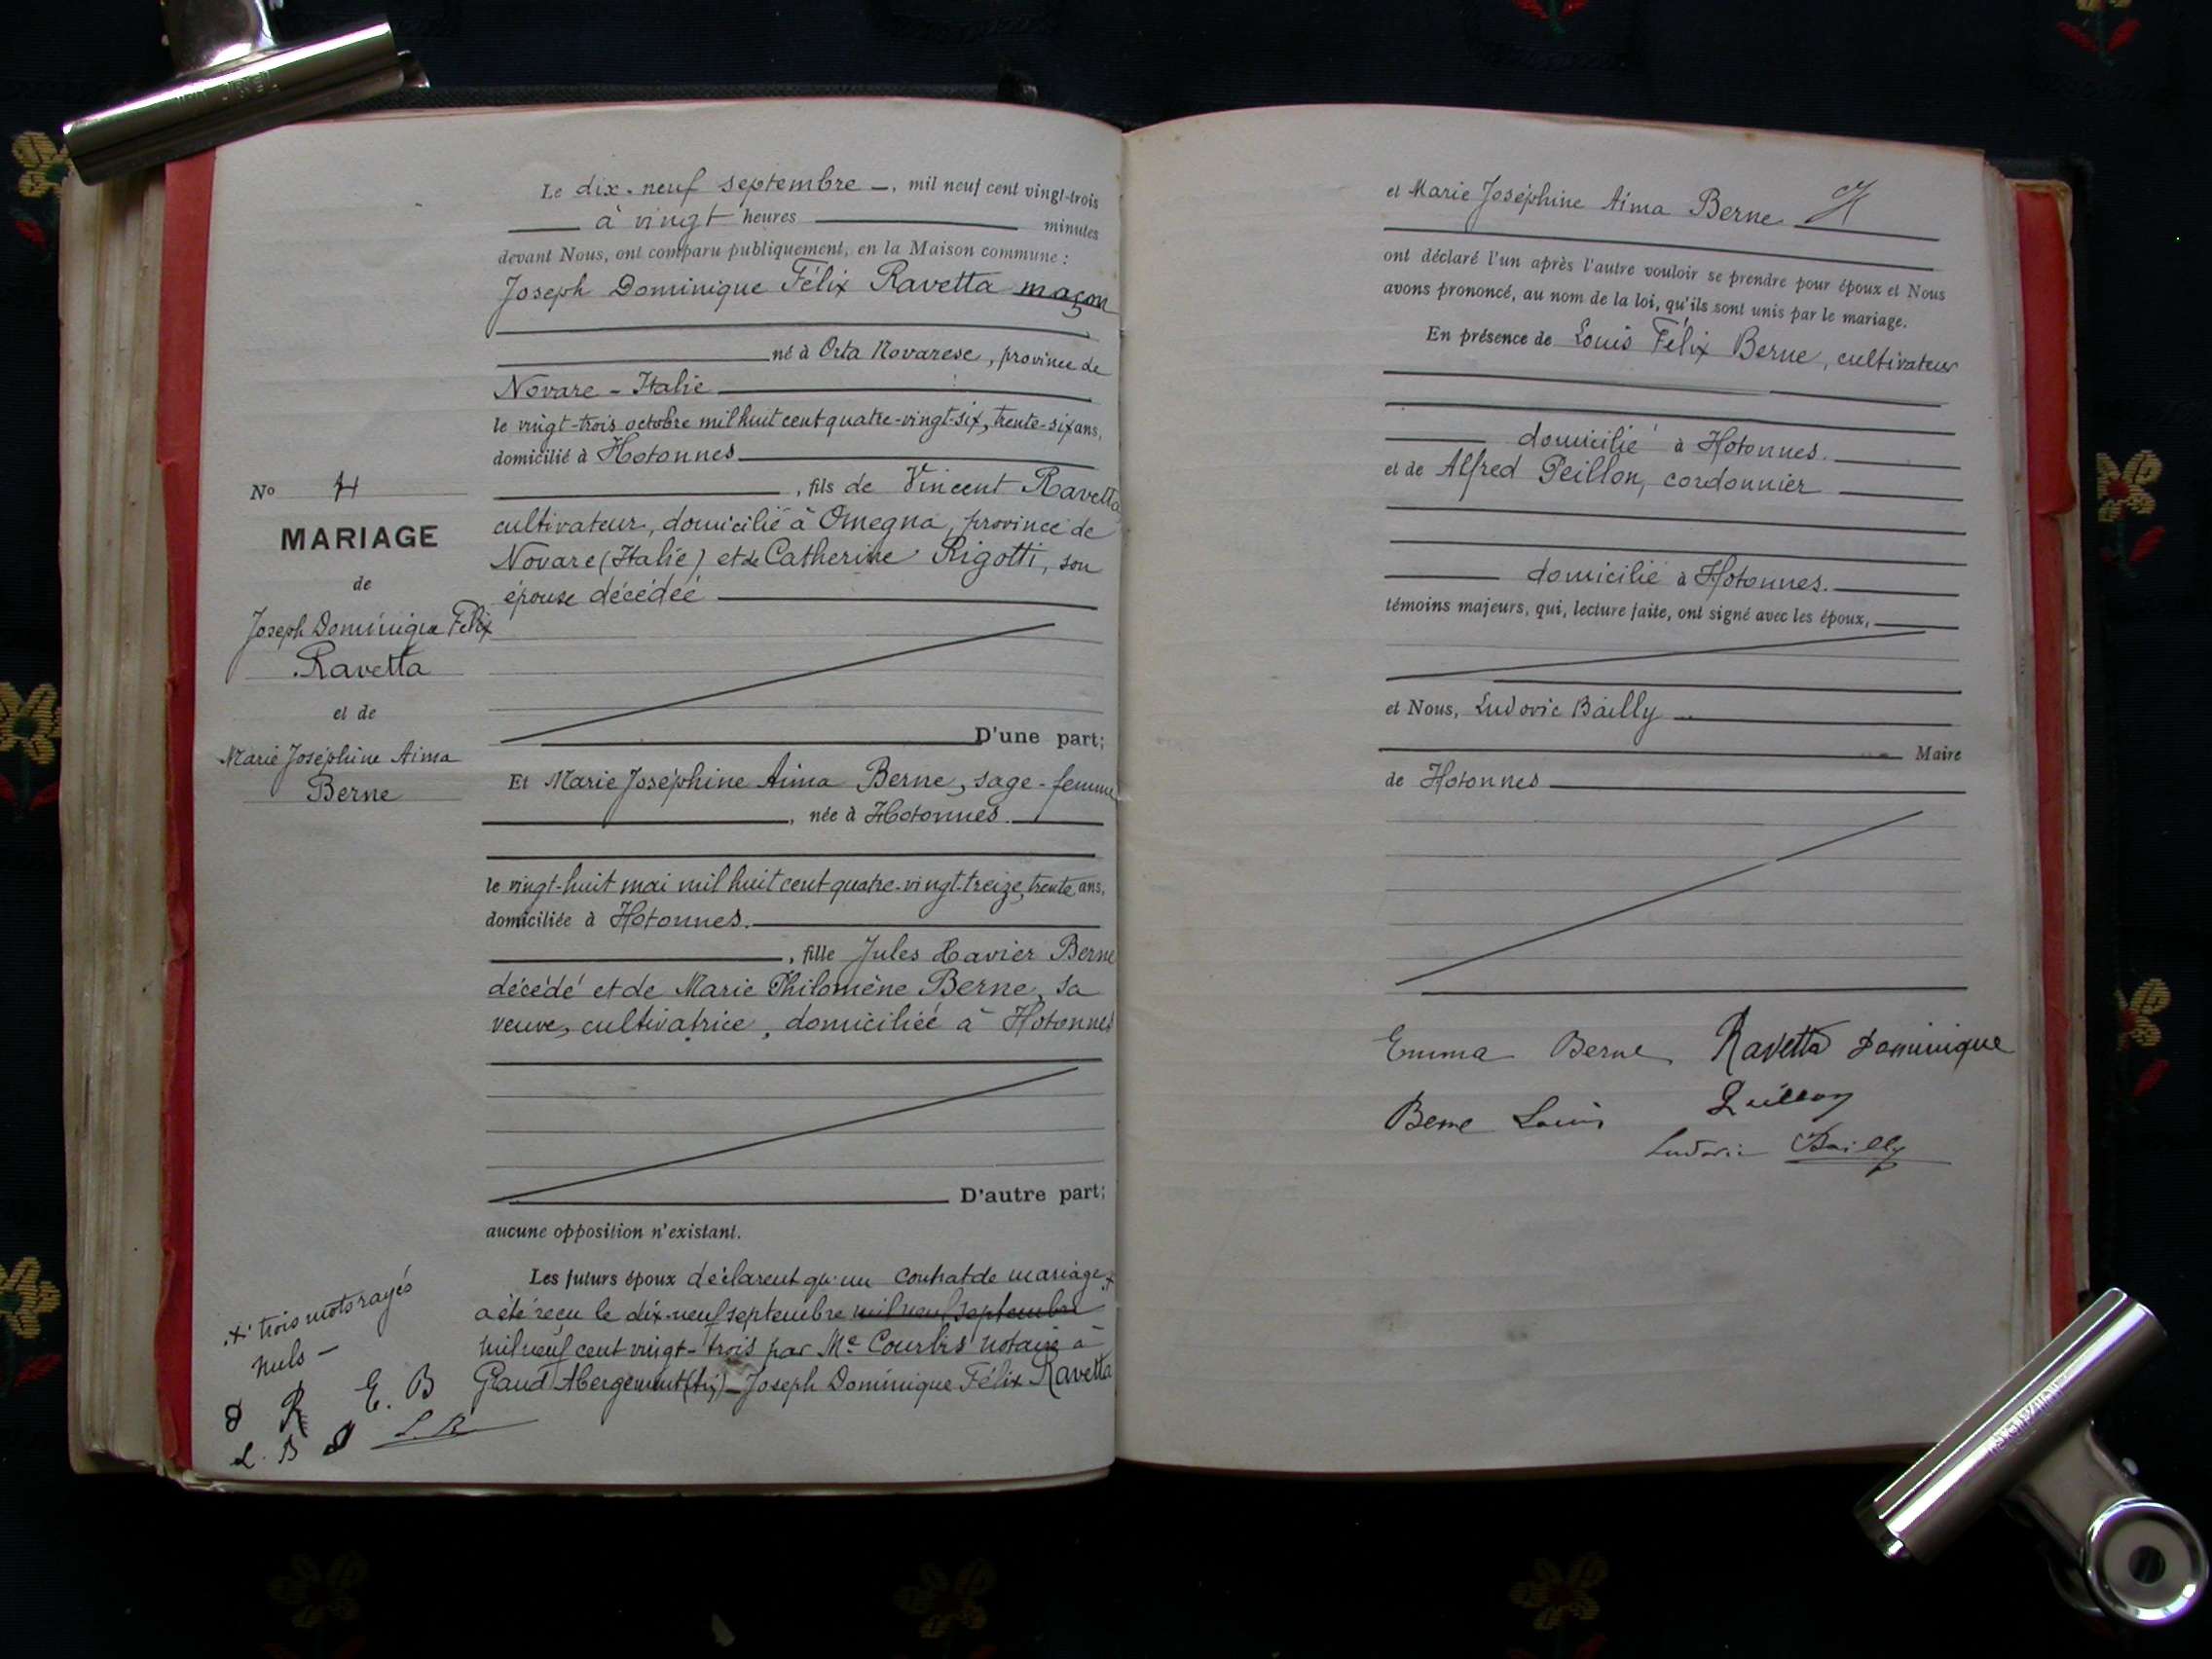 Le dix-neuf septembre —, mil neuf cent vingt-trois
à vingt heures minutes
devant Nous, ont comparu publiquement, en la Maison commune :
Joseph Dominique Félix Ravetta maçon
né à Orta Novarese, province de
Novare - Italie
le vingt-trois octobre mil huit cent quatre-vingt-six, trente-six ans,
domicilié à Hotonnes
, fils de Vincent Ravetta
cultivateur, domicilié à Omegna, province de
Novare (Italie) et de Catherine Rigotti, son
épouse décédée
D'une part;
Et Marie Joséphine Aima Berne, sage-femme
, née à Hotonnes.
le vingt-huit mai mil huit cent quatre-vingt-treize, trente ans,
domiciliée à Hotonnes.
, fille Jules Xavier Berne
décédé et de Marie Philomène Berne, sa
veuve, cultivatrice, domiciliée à Hotonnes
D'autre part;
aucune opposition n'existant.
Les futurs époux déclarent qu'un contrat de mariage
a été reçu le dix-neuf septembre mil neuf septembre
mil neuf cent vingt-trois par Me Courbis notaire à
Grand Abergement (Ain) — Joseph Dominique Félix Ravetta
No 4
MARIAGE
de
Joseph Dominique Félix
Ravetta
et de
Marie Joséphine Aima
Berne
trois mots rayés
nuls —
D R E. B
L. B L. B
et Marie Joséphine Aima Berne
ont déclaré l'un après l'autre vouloir se prendre pour époux et Nous
avons prononcé, au nom de la loi, qu'ils sont unis par le mariage.
En présence de Louis Félix Berne, cultivateur
domicilié à Hotonnes.
et de Alfred Peillon, cordonnier
domicilié à Hotonnes.
témoins majeurs, qui, lecture faite, ont signé avec les époux,
et Nous, Ludovic Bailly
Maire
de Hotonnes
Emma Berne Ravetta Dominique
Berne Louis Peillon
Ludovic Bailly